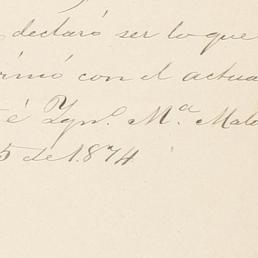 declaró ser lo que
rmó con el actua
é Ygn.º M.ª Malo
5 de 1874